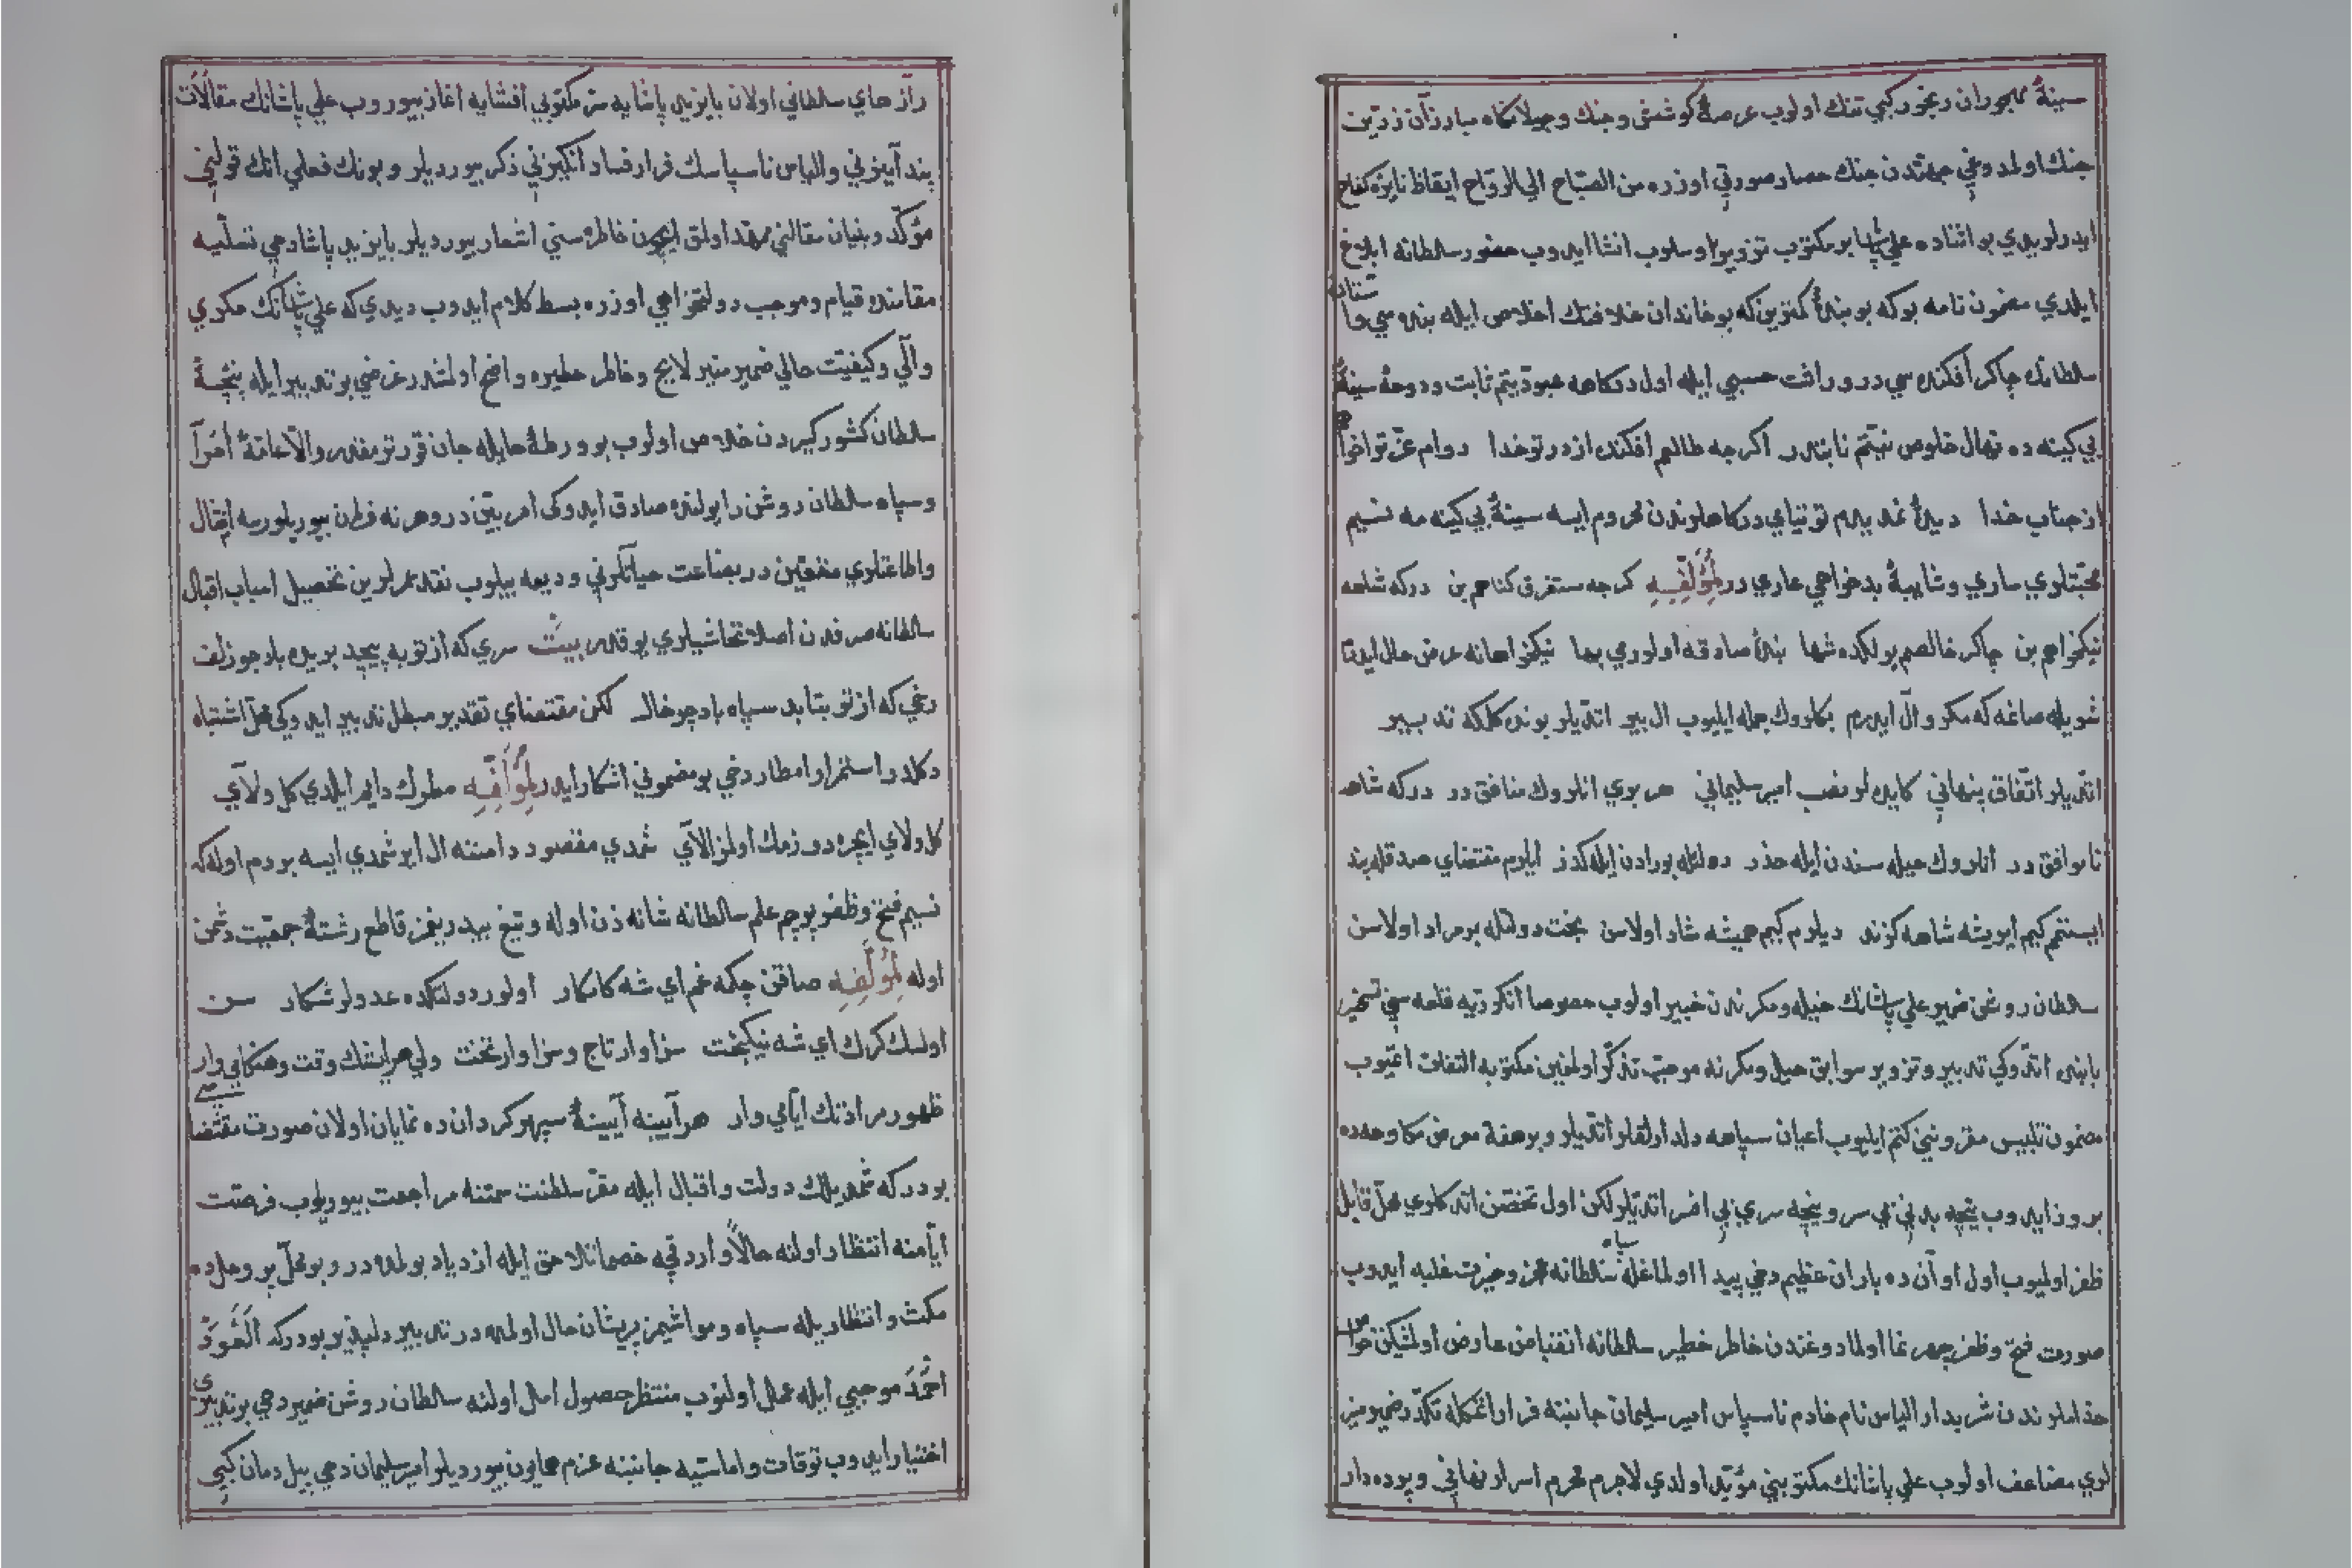 سینهٔ مهجوران رنجور كبي تنك اولوب عرصهٔ كوشش وجنك وجولانكاه مبارزان زرّین
جنك اولمدوغي جهتدن جنك حصار صورتي اوزره من الصباح الي الرّواح ایقاظ نایرهٔ كفاح
ایدرلردي بو اثناده علي پاشا بر مكتوب تزویر اوسلوب انشا ایدوب حضور سلطانه ابلاغ
ایلدي مضمون نامه بوكه بو بندهٔ كمترین كه بو خاندان خلافتك اخلاص ایله بنده سي و آستانهٔ
سلطانك چاكر افكنده سي در و رافت حسبي ایله اول دركاهه عبودیتم ثابت و دوحهٔ سینهٔ
بي كینه ده نهال خلوص نیّتم نابتدر اكرچه طالعم افكنده از در تو خدا دوام عزّ تو خواهم
از جناب خدا دیدهٔ غمدیدم توتیاي دركاهلرندن محروم ایسه سینهٔ بي كینه مه نسیم
محبّتلري ساري وشایبهٔ بدخواهي عاري در لمؤلّفه كرچه مستغرق كناهم بن دركه شاهه
نیكخواهم بن چاكر خالصم یولكده شها بندهٔ صادقه اولورمي بها نیكخواهانه عرض حال ایدرم
شویله صانمه كه مكر و آل ایدرم بكلروك جمله ایلیوب ال بیر اتدیلر بونده كلمكه تدبیر
اتدیلر اتّفاق پنهاني كایده لر نصب امیر سلیماني هر بري انلروك منافق در دركه شاهه
ناموافق در انلروك حیله سندن ایله حذر دولتله بورادن ایله كذر ایلرم مقتضاي صدقله پند
ایستمم كیم ایریشه شاهه كزند دیلرم كیم همیشه شاد اولاسن بخت دولتله بر مراد اولاسن
سلطان روشن ضمیر علي پاشانك حیله ومكرندن خبیر اولوب خصوصا انكوریه قلعه سني تسخیر
بابنده اتدوكي تدبیر وتزویر سوابق حیل ومكرنه موجب تذكّر اولمغین مكتوبه التفات اتمیوب
مضمون تلبیس مقروني كتم ایلیوب اعیان سپاهه دلدارلقلر اتدیلر وبر هفته معرض مكاوحه ده
بروز ایدوب نیچه بدني بي سر و نیچه سري بي افسر اتدیلر لكن اول تحصّن اتدكلري محلّ قابل
ظفر اولمیوب اول اوان ده باران عظیم دخي پیدا اولماغله سپاه سلطانه عجز وحیرت غلبه ایدوب
صورت فتح وظفر چهره نما اولمادوغندن خاطر خطیر سلطانه انقباض عارض اولمشیكن خواص
خداملرندن شربدار الیاس نام خادم ناسپاس امیر سلیمان جانبنه فرار اتمكله تكدّر ضمیر منیر
لري مضاعف اولوب علي پاشانك مكتوبني مؤیّد اولدي لاجرم محرم اسرار نهاني و پرده دار
رازهاي سلطاني اولان بایزید پاشایه سرّ مكتوبي افشایه اغاز بیوروب علي پاشانك مقالات
پند آمیزني والیاس ناسپاسك فرار فساد انكیزني ذكر بیوردیلر وبونك فعلي انك قولني
مؤكّد وبنیان مقالني ممهّد اولمق ایچون خاطره سني اشعار بیوردیلر بایزید پاشا دخي تسلّیه
مقامنده قیام وموجب دولتخواهي اوزره بسط كلام ایدوب دیدي كه علي پاشانك مكري
وآلي وكیفیّت حالي ضمیر منیره لایح وخاطر خطیره واضح اولمشدر غرضي بو تدبیر ایله پنجهٔ
سلطان كشور كیردن خلاص اولوب بو ورطهٔ هایله جان قورتومقدر والّا عامّهٔ امرا
وسپاه سلطان روشن رایولنده صادق ایدوكي امر بیّن در وهر نه فرمان بیوریلورسه امتثال
واطاعتلري متعیّن در بضاعت حیاتلرني ودیعه بیلوب نقد عمرلرین تحصیل اسباب اقبال
سلطانه صرفدن اصلا تحاشیلري یوقدر بیت سري كه از تو بپیچد بریده باد چو زلف
رخي كه از تو بتابد سیاه باد چو خال لكن مقتضاي تقدیر مبطل تدبیر ایدوكي محلّ اشتباه
دكلدر استمرار امطار دخي بو مضموني اشكار ایدر لمؤلّفه مطرلك دایم ایلدي كل ولاي
كل ولاي ایچره دورمك اولمز الاي شمدي مقصود دامننه ال ایرشمدي ایسه بر دم اوله كه
نسیم فتح وظفر پرچم علم سلطانه شانه زن اوله وتیغ بیدریغمز قاطع رشتهٔ جمعیّت دشمن
اوله لمؤلّفه صاقن چكمه غم اي شه كامكار اولور دولتكده عدولر شكار سن
اولسك كرك اي شه نیكبخت سزاوار تاج وسزاوار تخت ولي هر ایشك وقت وهنكامي وار
ظهور مرادنك ایّامي وار هر آیینه آیینهٔ سپهر كردان ده نمایان اولان صورت مقتضاسي
بودر كه شمدیلك دولت واقبال ایله مقرّ سلطنت سمتنه مراجعت بیوریلوب فرصت
ایّامنه انتظار اولنه حالا واردقچه خصمانلاحق ایله ازدیاد بولمده در وبو محلّ پر وحل ده
مكث وانتظار یله سپاه ومواشیمز پریشان حال اولمده در تدبیر دلپذیر بودر كه العود
احمد موجبي ایله عمل اولنوب منتظر حصول امل اولنه سلطان روشن ضمیر دخي بو تدبیري
اختیار ایدوب توقات واماسیه جانبنه عزم همایون بیوردیلر امیر سلیمان دخي پیل دمان كبي